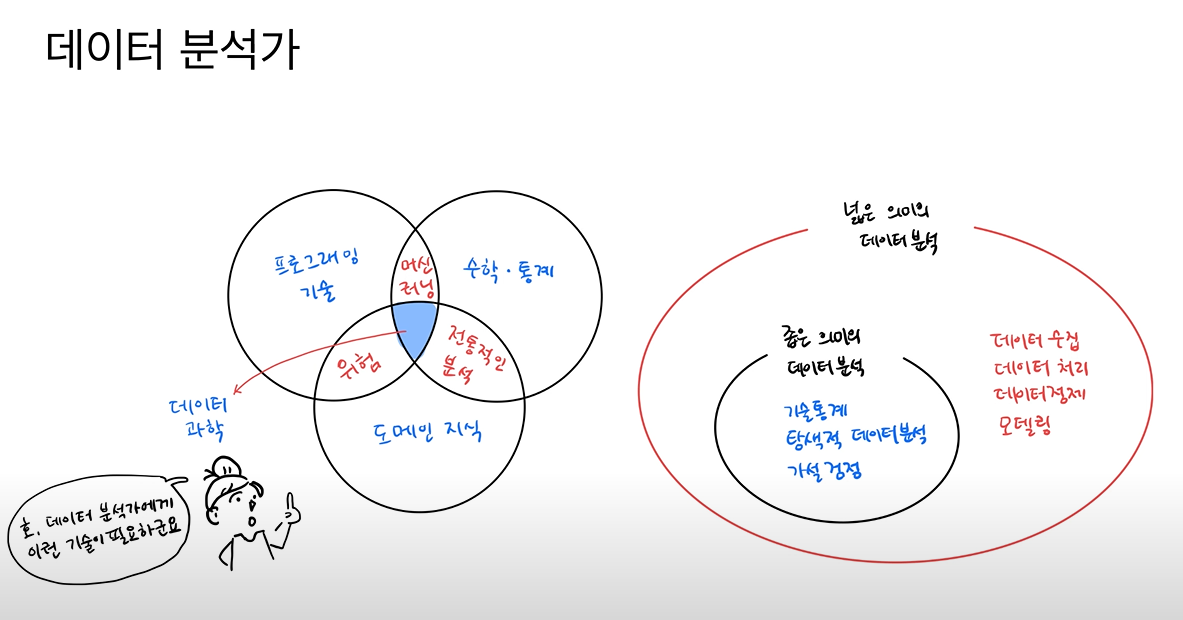 데이터 분석가
프로그래밍
기술
머신
러닝
수학·통계
위험
전통적인
분석
데이터
과학
도메인 지식
호, 데이터 분석가에게
이런 기술이 필요하군요
넓은 의미의
데이터 분석
좁은 의미의
데이터 분석
기술통계
탐색적 데이터 분석
가설 검정
데이터 수집
데이터 처리
데이터 정제
모델링